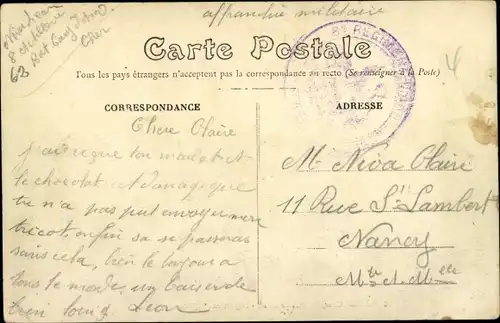 affranchie militaire
8e REGIMENT
Carte Postale
Tous les pays étrangers n'acceptent pas la correspondance au recto (Se renseigner à la Poste)
CORRESPONDANCE
ADRESSE
Chere Claire
j'ai reçue ton mandat et
le chocolat et domage que
tu n'a pas put envoyer mon
tricot, enfin sa se passeras
sans cela, bien le bonjour a
tous le monde, un baiser de
bien loing Leon
Mle Neva Claire
11 Rue St Lambert
Nancy
Mthe et Mlle